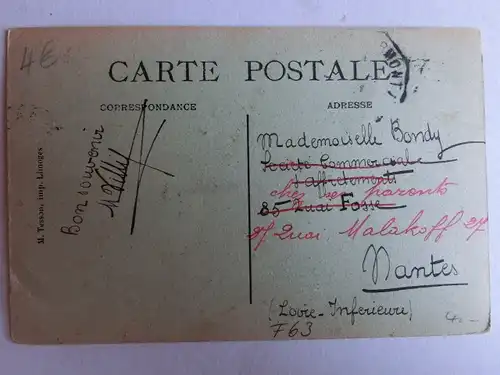 4€
CARTE POSTALE
MONT
7
CORRESPONDANCE
ADRESSE
M. Tesson, imp. Limoges
Bon souvenir
Mademoiselle Bondy
Société Commerciale
d'affrètements
chez ses parents
85 Quai Fosse
27 Quai Malakoff 27
Nantes
(Loire-Inférieure)
F63
4.-